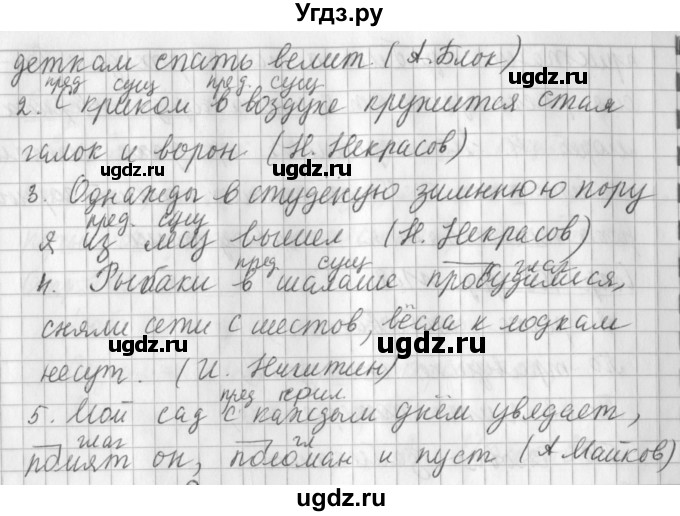 Угдз.ру
деткам спать велит. (А. Блок)
пред сущ пред. сущ
2. С криком в воздухе кружится стая
галок и ворон (Н. Некрасов)
ugdz.ru ugdz.ru
3. Однажды в студёную зимнюю пору
пред. сущ
я из лесу вышел (Н. Некрасов)
пред. сущ глаг
4. Рыбаки в шалаше пробудилися,
ugdz.ru
сняли сети с шестов, вёсла к лодкам
ugdz.ru
несут. (И. Никитин)
пред прил.
5. Мой сад с каждым днём увядает,
глаг гл
помят он, поломан и пуст (А Майков)
ugdz.ru